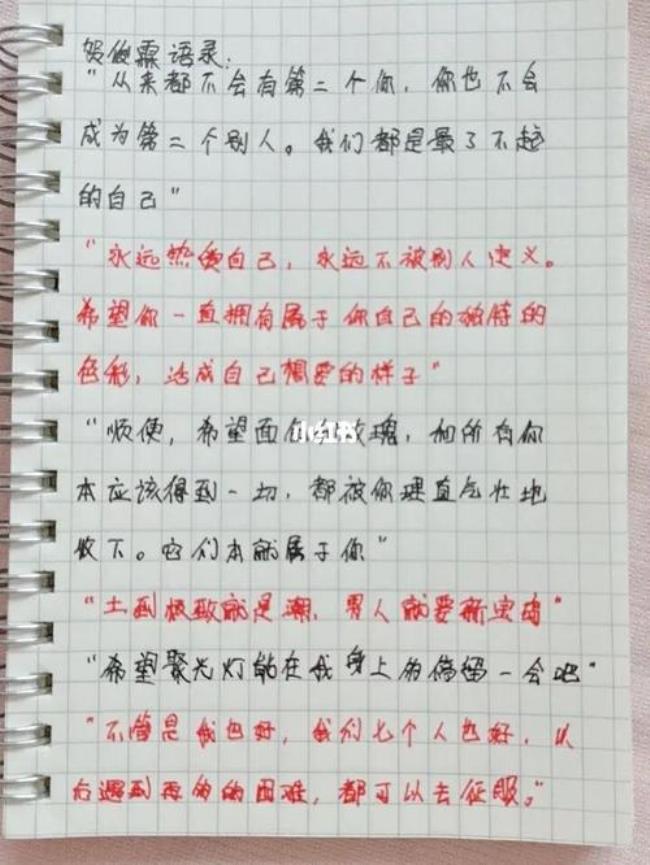 贺俊霖语录:
"从来都不会有第二个你，你也不会
成为第二个别人。我们都是最了不起
的自己"
"永远热爱自己，永远不被别人定义。
希望你一直拥有属于你自己的独特的
色彩，活成自己想要的样子"
"顺便，希望面包和玫瑰，和所有你
小红书
本应该得到一切，都被你理直气壮地
收下。它们本就属于你"
"土到极致就是潮，男人就要新宝岛"
"希望聚光灯能在我身上的停留一会吧"
"不管是我也好，我们七个人也好，以
后遇到再多的困难，都可以去征服。"